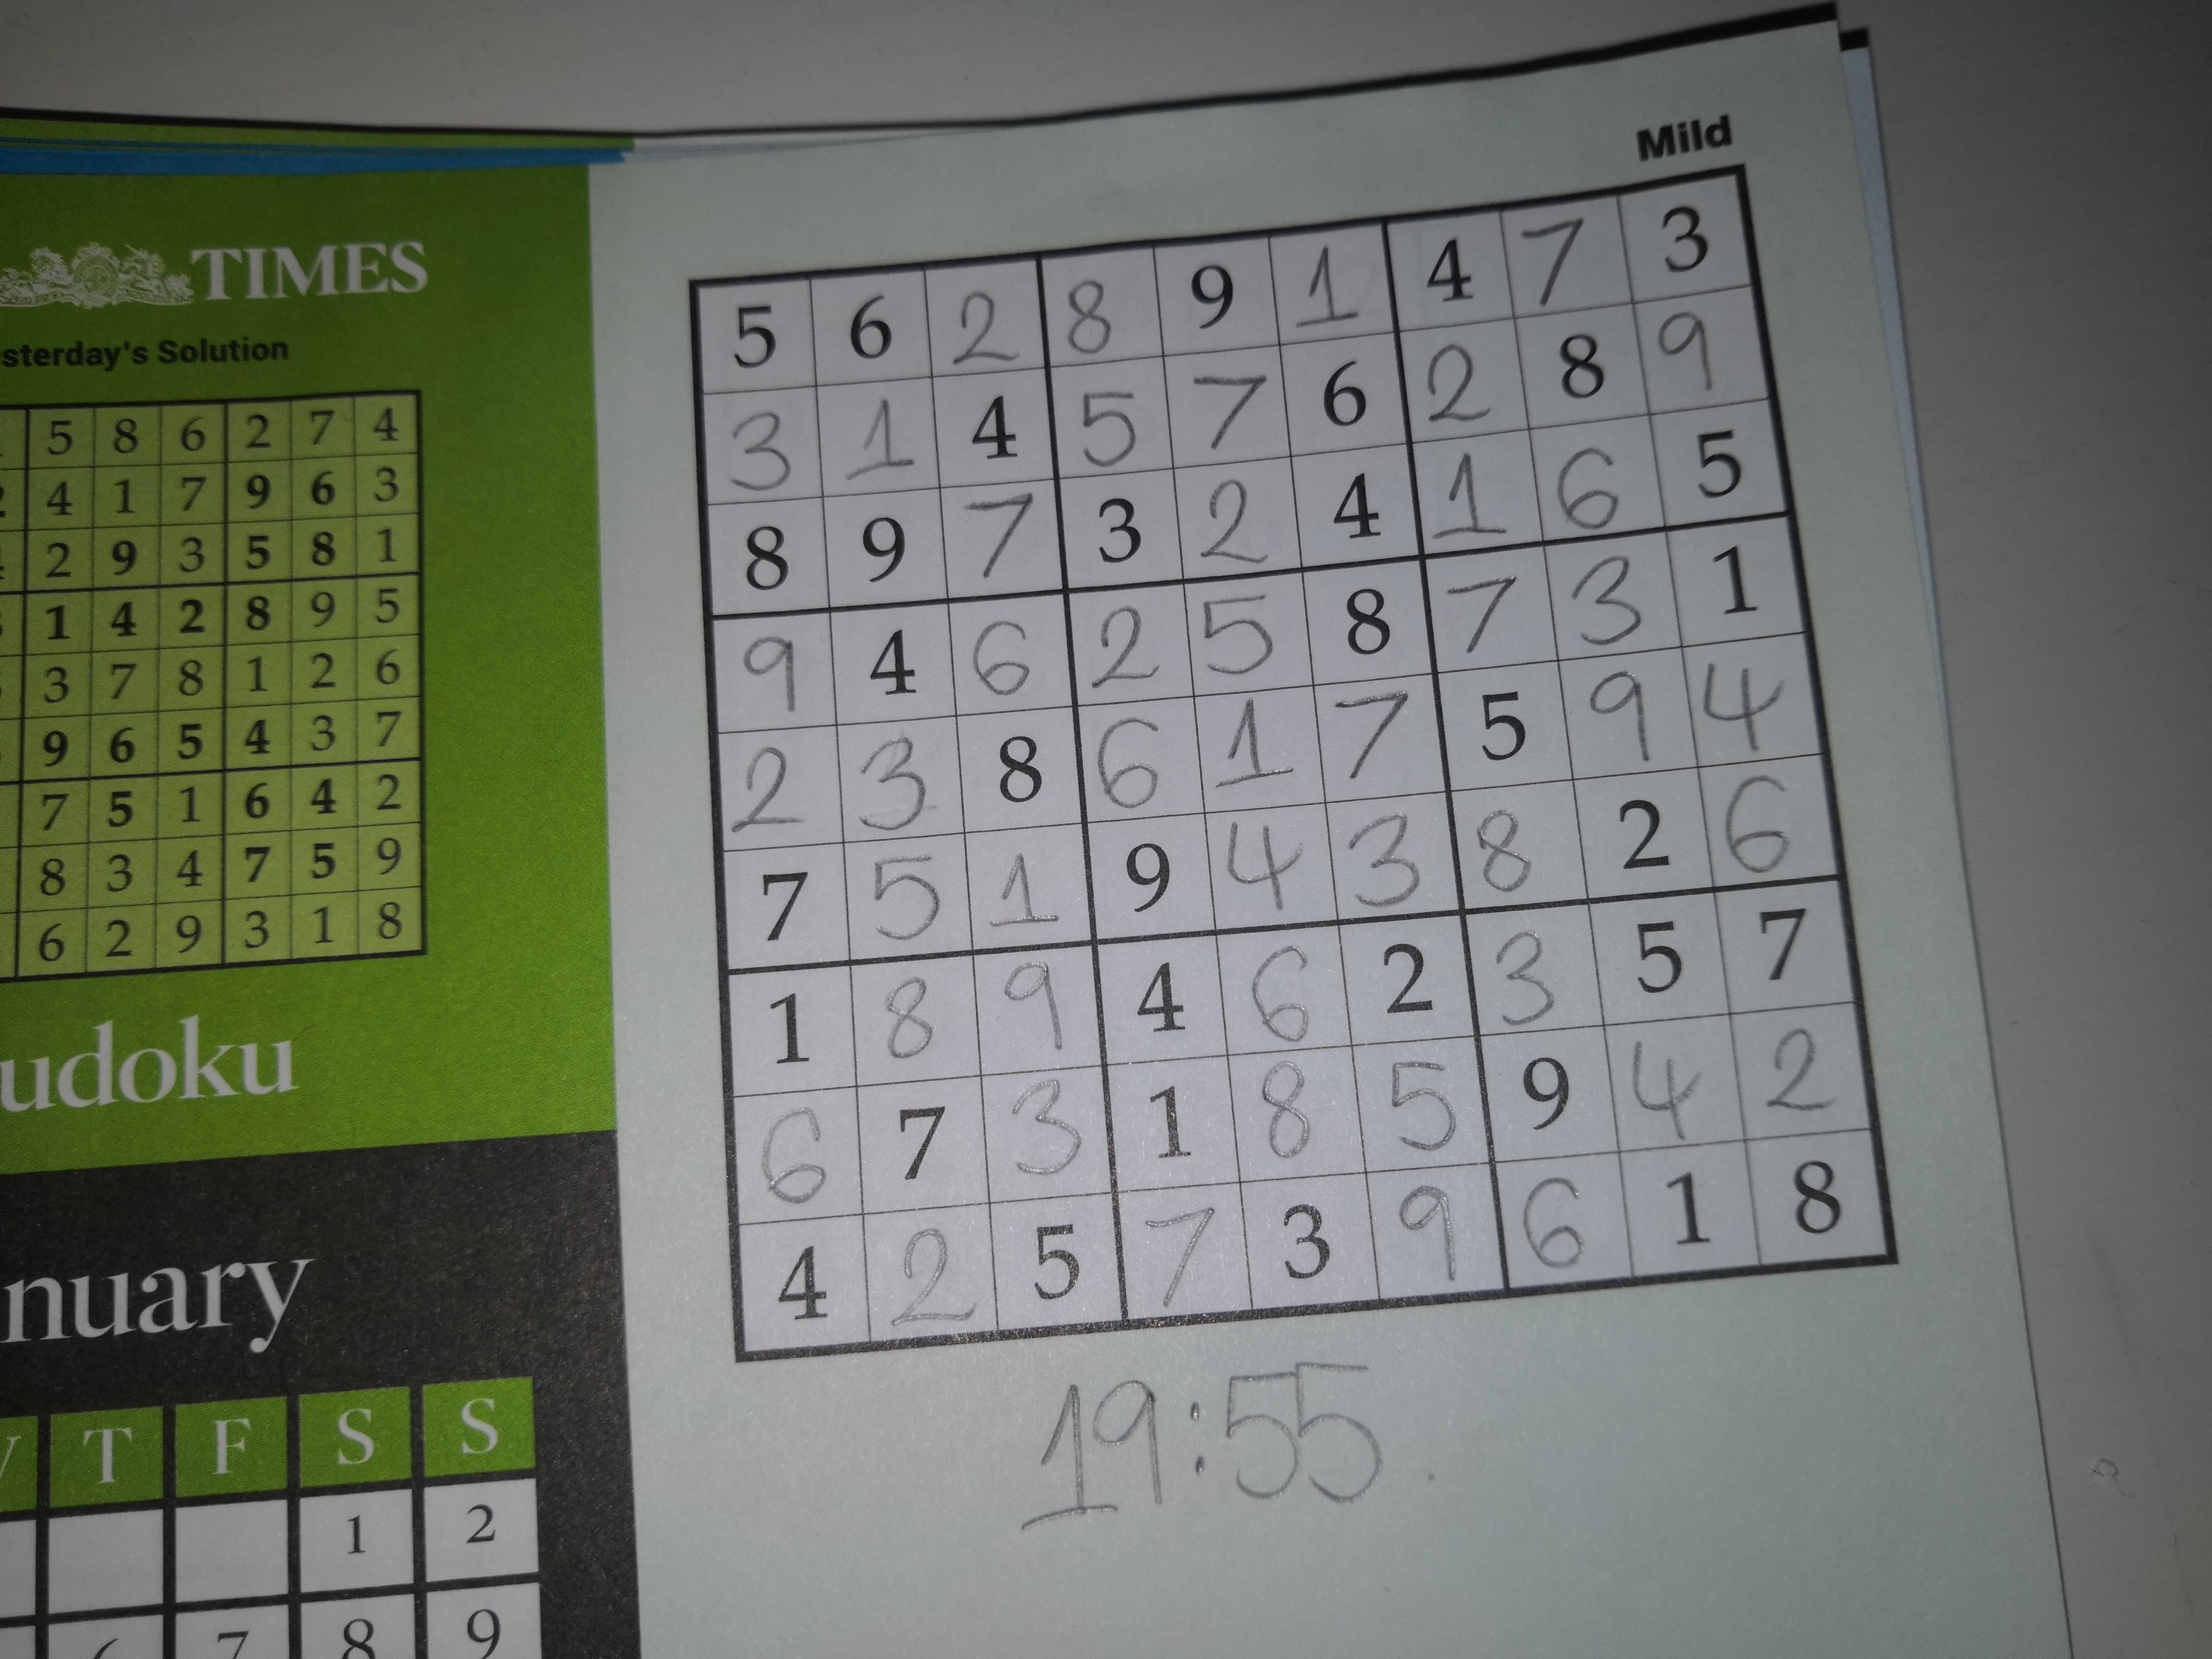 Mild
TIMES
sterday's Solution
5 8 6 2 7 4
4 1 7 9 6 3
2 9 3 5 8 1
1 4 2 8 9 5
3 7 8 1 2 6
9 6 5 4 3 7
7 5 1 6 4 2
8 3 4 7 5 9
6 2 9 3 1 8
udoku
nuary
T F S S
1 2
7 8 9
5 6 2 8 9 1 4 7 3
3 1 4 5 7 6 2 8 9
8 9 7 3 2 4 1 6 5
9 4 6 2 5 8 7 3 1
2 3 8 6 1 7 5 9 4
7 5 1 9 4 3 8 2 6
1 8 9 4 6 2 3 5 7
6 7 3 1 8 5 9 4 2
4 2 5 7 3 9 6 1 8
19:55